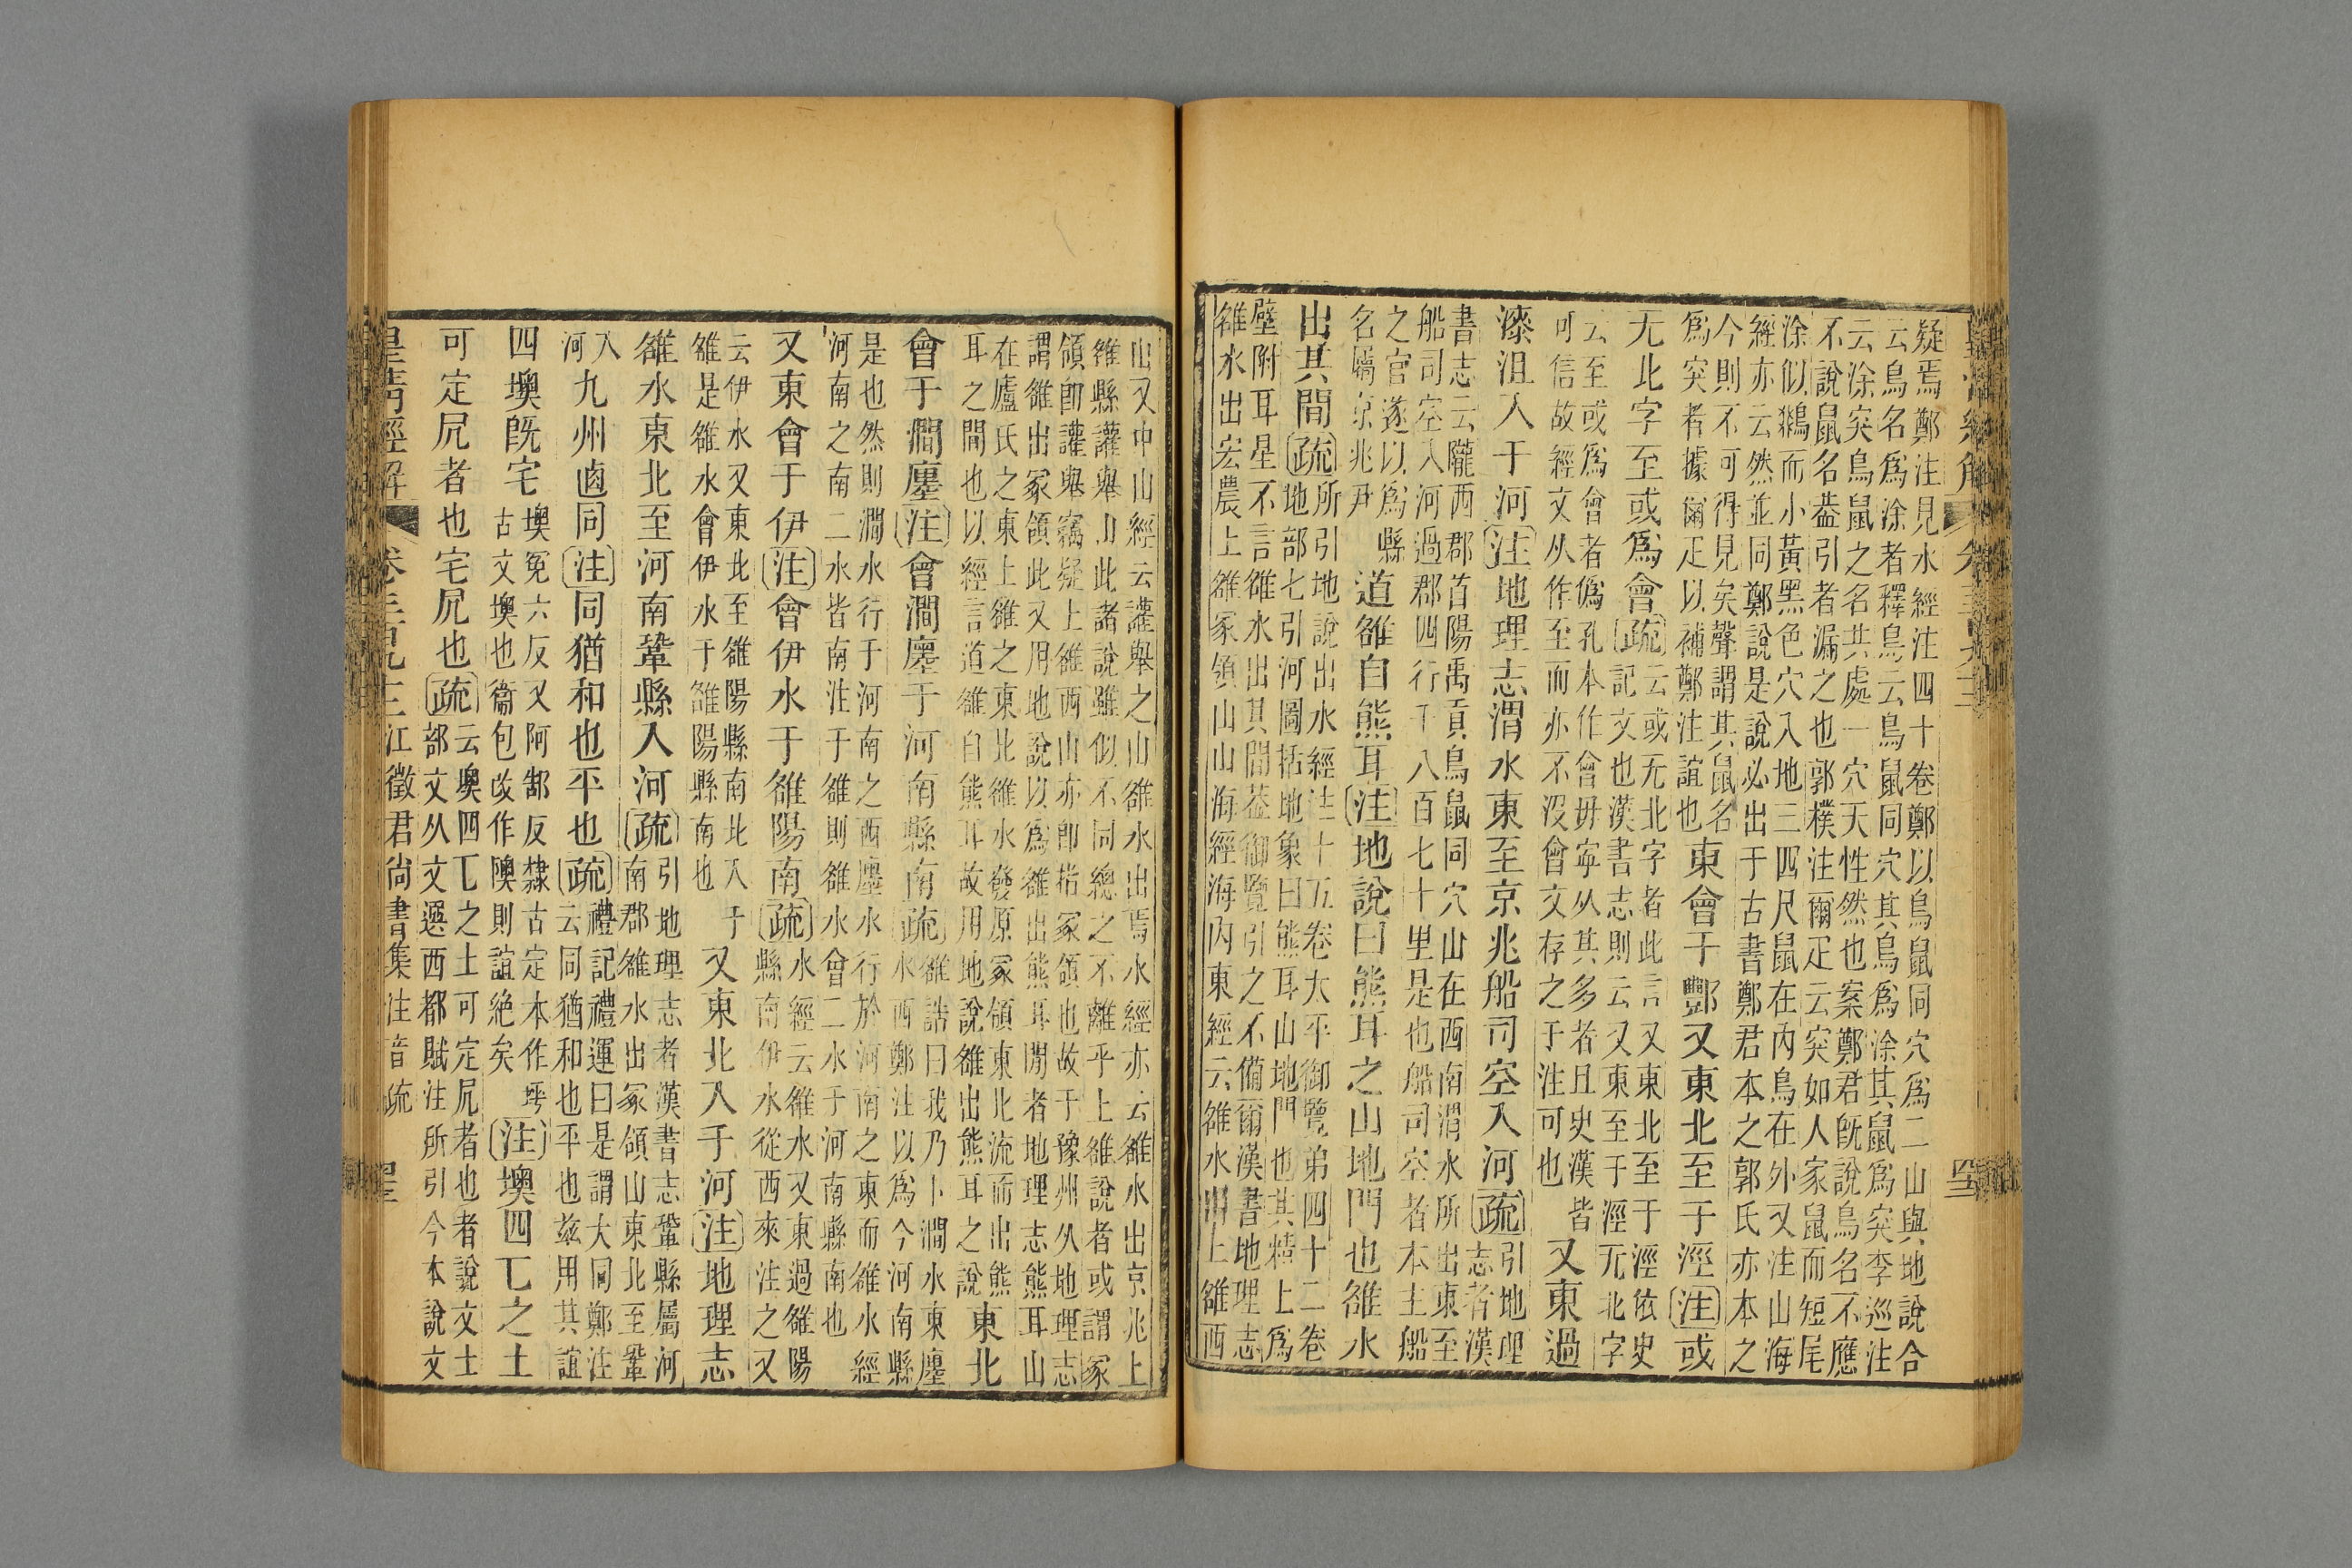 疑焉鄭注見水經注四十卷鄭以鳥鼠同穴爲二山與地說合
云鳥名爲涂者釋鳥云鳥鼠同穴其鳥爲涂其鼠爲突李巡注
云涂突鳥鼠之名共處一穴天性然也案鄭君旣說鳥名不應
不說鼠名葢引者漏之也郭樸注爾疋云突如人家鼠而短尾
涂似鵽而小黃黑色穴入地三四尺鼠在內鳥在外又注山海
經亦云然並同鄭說是說必出于古書鄭君本之郭氏亦本之
今則不可得見矣聲謂其鼠名
爲突者據爾疋以補鄭注誼也
東會于酆又東北至于涇注或
无北字至或爲會疏
云或无北字者此言又東北至于涇依史
記文也漢書志則云又東至于涇无北字
云至或爲會者僞孔本作會毋寧从其多者且史漢皆
可信故經文从作至而亦不沒會文存之于注可也
又東過
漆沮入于河注地理志渭水東至京兆船司空入河疏
引地理
志者漢
書志云隴西郡首陽禹貢鳥鼠同穴山在西南渭水所出東至
船司空入河過郡四行千八百七十里是也船司空者本主船
之官遂以爲縣
名屬京兆尹
道雒自熊耳注地說曰熊耳之山地門也雒水
出其間疏
所引地說出水經注十五卷太平御覽弟四十二卷
地部七引河圖括地象曰熊耳山地門也其精上爲
壁附耳星不言雒水出其間葢御覽引之不備爾漢書地理志
雒水出宏農上雒冢領山山海經海內東經云雒水上雒西
山又中山經云讙舉之山雒水出焉水經亦云雒水出京兆上
雒縣讙舉山此諸說雖似不同總之不離乎上雒說者或謂冢
領卽讙舉竊疑上雒西山亦卽指冢領也故于豫州从地理志
謂雒出冢領此又用地說以爲雒出熊耳閒者地理志熊耳山
在廬氏之東上雒之東北雒水發原冢領東北流而出熊
耳之間也以經言道雒自熊耳故用地說雒出熊耳之說
東北
會于澗廛注會澗廛于河南縣南疏
雒誥曰我乃卜澗水東廛
水西鄭注以爲今河南縣
是也然則澗水行于河南之西廛水行於河南之東而雒水經
河南之南二水皆南注于雒則雒水會二水于河南縣南也
又東會于伊注會伊水于雒陽南疏
水經云雒水又東過雒陽
縣南伊水從西來注之又
云伊水又東北至雒陽縣南北入于
雒是雒水會伊水于雒陽縣南也
又東北入于河注地理志
雒水東北至河南鞏縣入河疏
引地理志者漢書志鞏縣屬河
南郡雒水出冢領山東北至鞏
入
河
九州逌同注同猶和也平也疏
禮記禮運曰是謂大同鄭注
云同猶和也平也茲用其誼
四墺旣宅
墺寃六反又阿郜反隸古定本作㙗
古文墺也衞包改作隩則誼絕矣
注墺四匸之土
可定凥者也宅凥也疏
云墺四匸之土可定凥者也者說文土
部文从文選西都賦注所引今本說文
皇清經解 卷三百九十三 江徵君尚書集注音疏